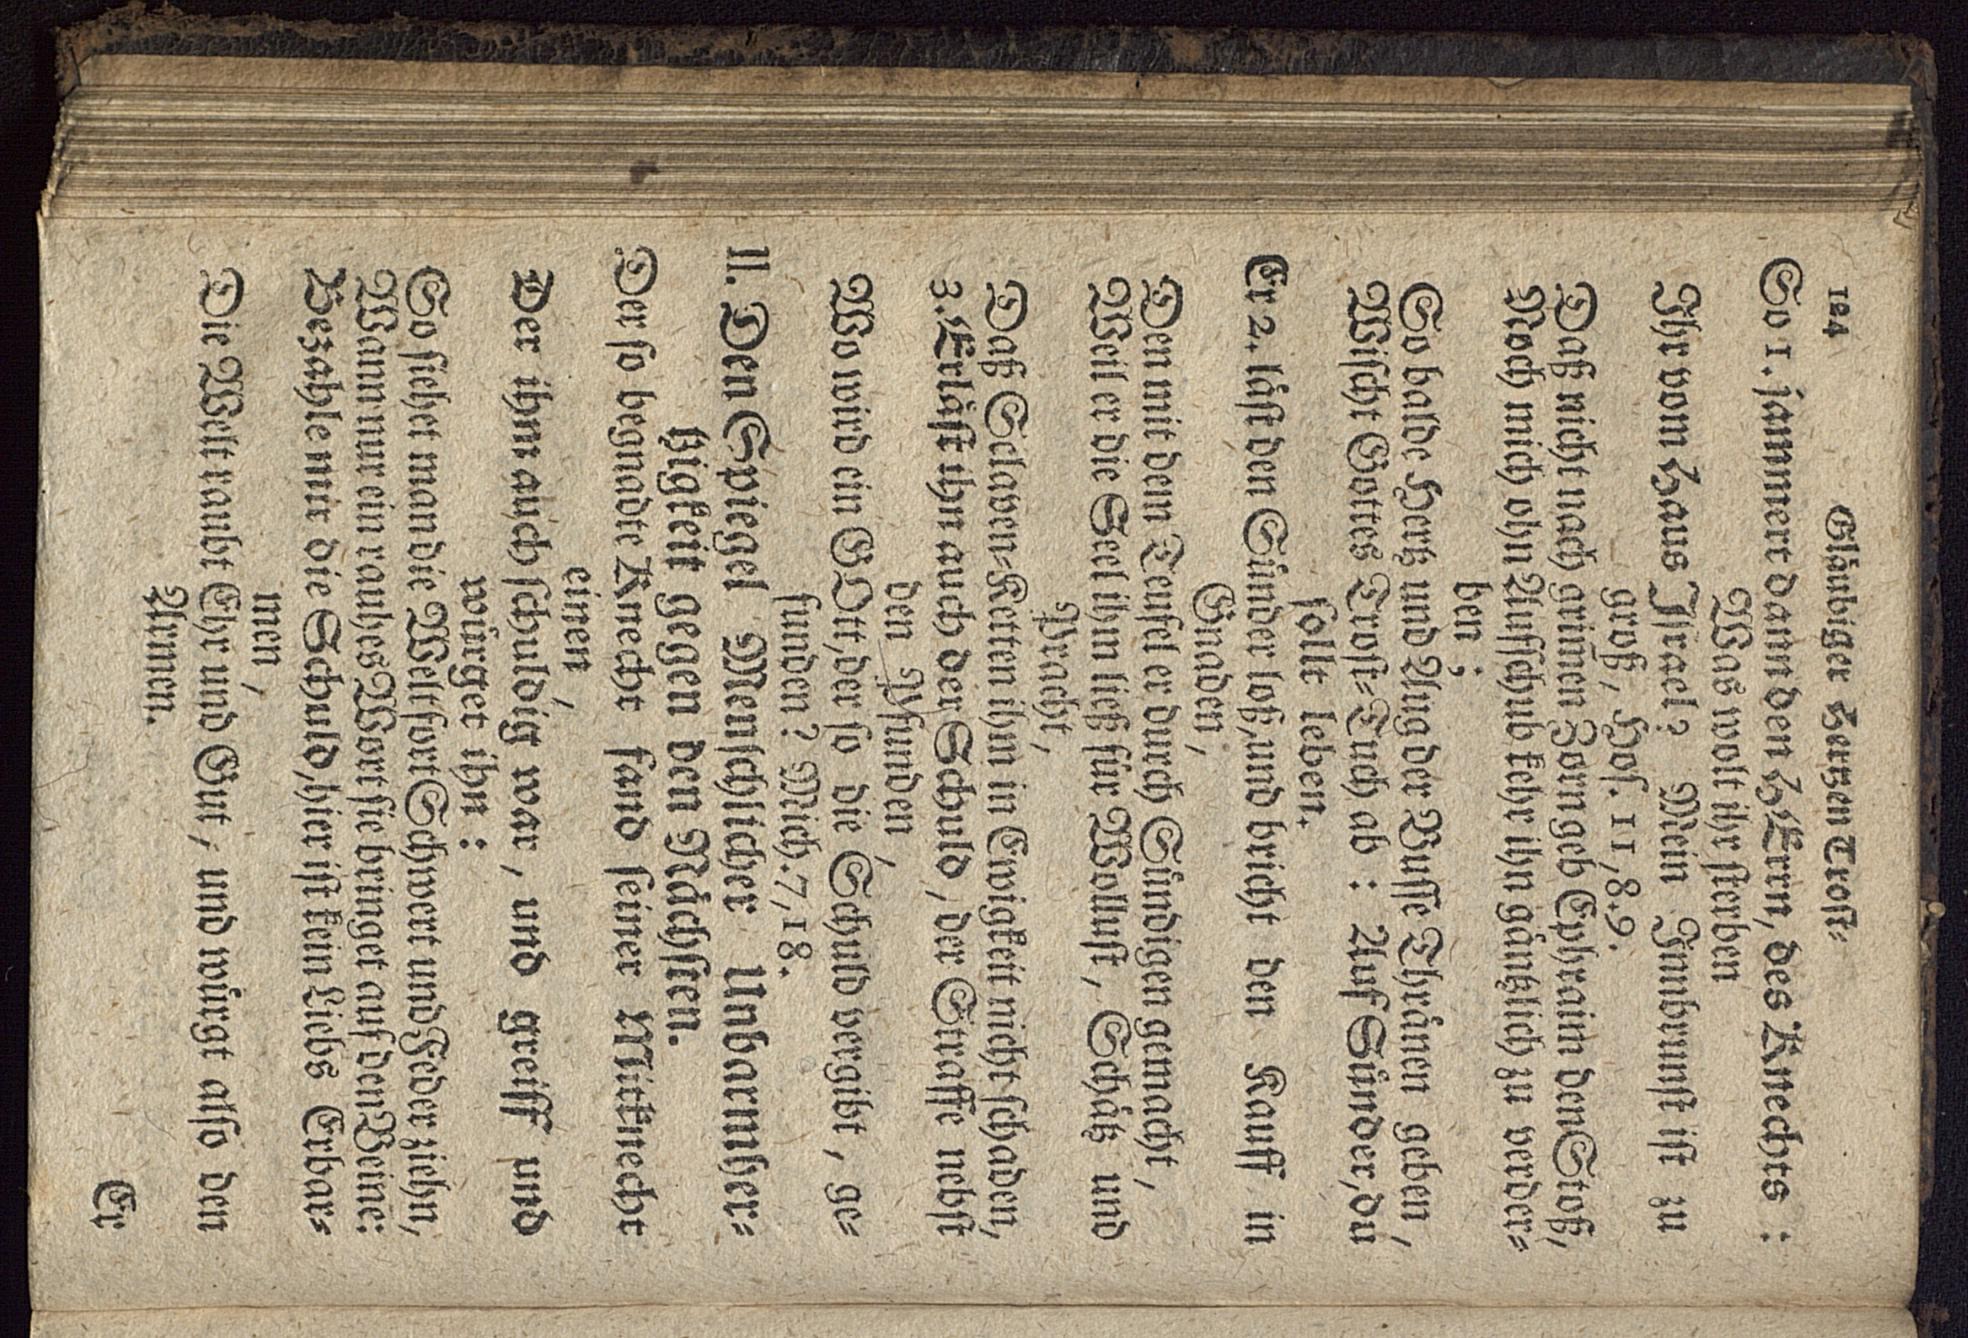 124 Gläubiger Hertzen Trost-
So 1. jammert dann den HErrn, des Knechts:
Was wolt ihr sterben
Ihr vom Haus Israel? Mein Innbrunst ist zu
groß, Hos. 11, 8. 9.
Daß nicht nach grim̃en Zorn geb Ephraim den Stoß,
Noch mich ohn Auffschub kehr ihn gäntzlich zu verder-
ben;
So balde Hertz und Aug der Busse Thränen geben,
Wischt Gottes Trost-Tuch ab: Auf Sünder, du
sollt leben.
Er 2. läst den Sünder loß, und bricht den Kauff in
Gnaden,
Den mit dem Teufel er durch Sündigen gemacht,
Weil er die Seel ihm ließ für Wollust, Schätz und
Pracht,
Daß Sclaven-Ketten ihm in Ewigkeit nicht schaden,
3. Erläst ihn auch der Schuld, der Straffe nebst
den Pfunden,
Wo wird ein GOtt, der so die Schuld vergibt, ge-
funden? Mich. 7, 18.
II. Den Spiegel Menschlicher Unbarmher-
tzigkeit gegen den Nächsten.
Der so begnadte Knecht fand seiner Mitknecht
einen,
Der ihm auch schuldig war, und greiff und
würget ihn:
So siehet man die Welt fort Schwert und Feder ziehn,
Wann nur ein rauhes Wort sie bringet auf den Beinen:
Bezahle mir die Schuld, hier ist kein Liebs Erbar-
men,
Die Welt raubt Ehr und Gut, und würgt also den
Armen.
Er